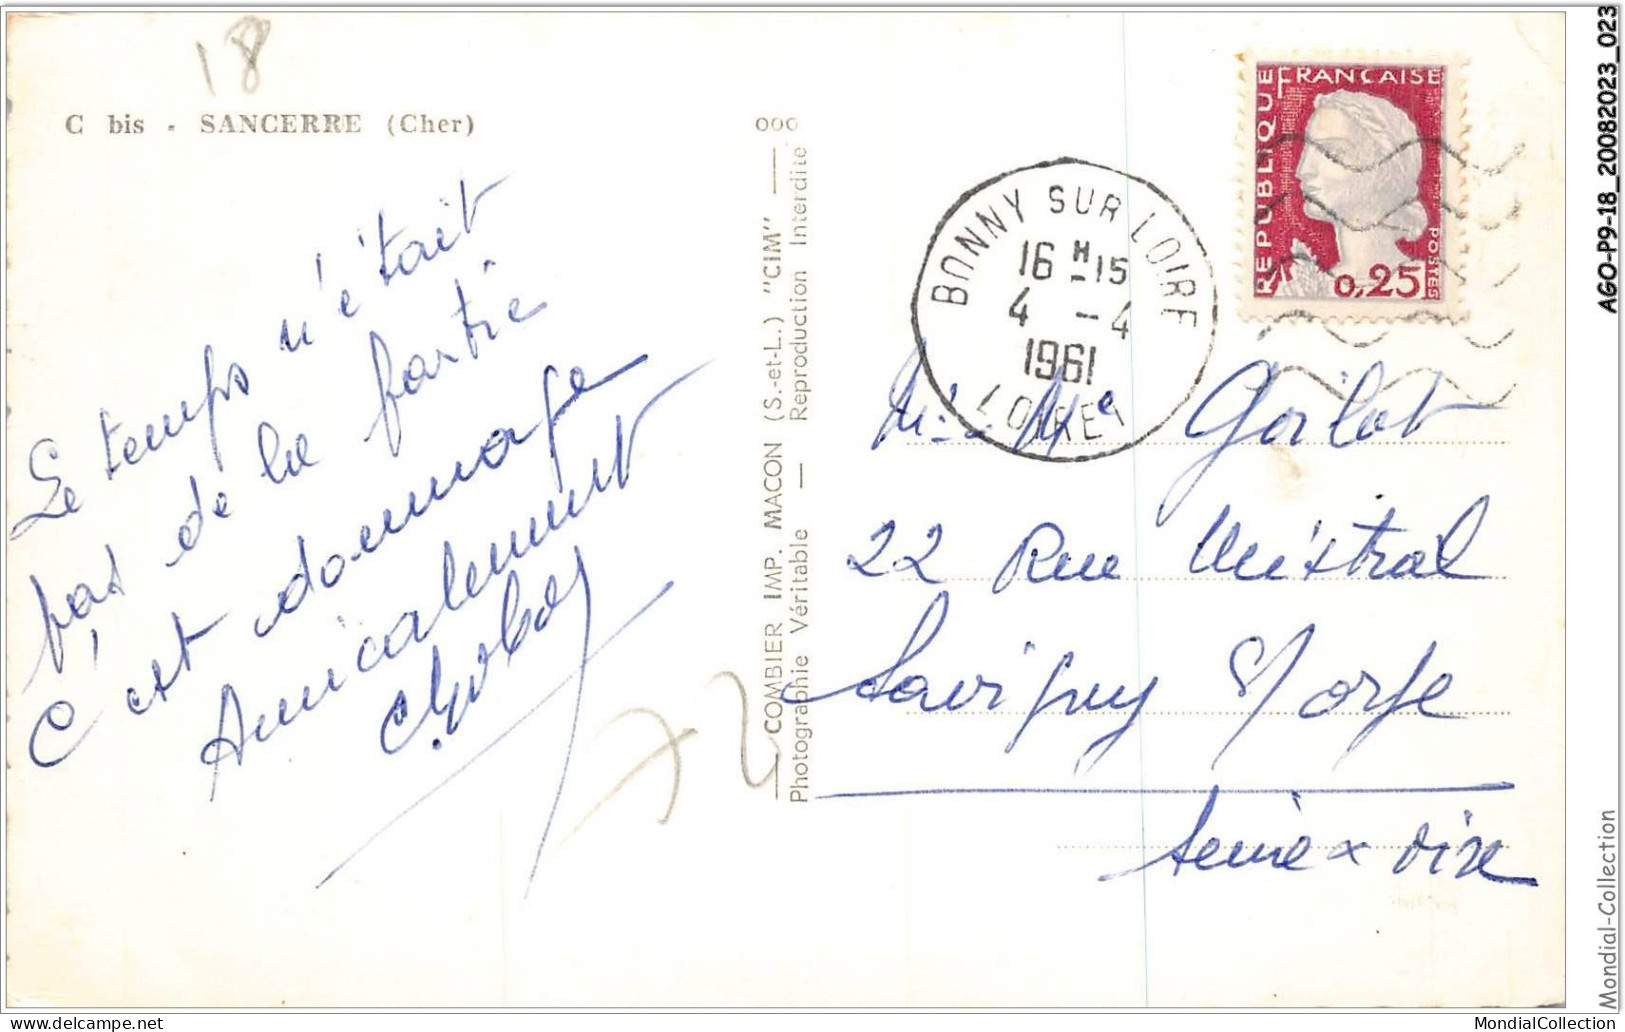 18
C bis - SANCERRE (Cher)
Le temps n'était
pas de la partie
C'est dommage
Amicalement
COMBIER IMP. MACON (S.-et-L.) "CIM"
Photographie Véritable — Reproduction Interdite
RÉPUBLIQUE FRANÇAISE
POSTES
0,25
BONNY SUR LOIRE
16 H 15
4 - 4
1961
LOIRET
Gorlot
22 Rue Mistral
Savigny S/ orge
Seine x oise
AGO-P9-18_20082023_023
Mondial-Collection
delcampe.net
MondialCollection